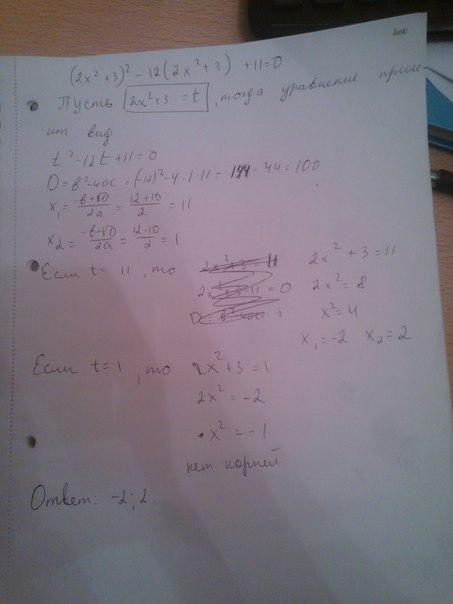 (2x² + 3)² - 12(2x² + 3) + 11 = 0
Пусть 2x² + 3 = t, тогда уравнение прим-
ит вид
t² - 12t + 11 = 0
D = в² - 4ac = (-12)² - 4·1·11 = 144 - 44 = 100
x₁ = (-в + √D)/2a = (12 + 10)/2 = 11
x₂ = (-в - √D)/2a = (12 - 10)/2 = 1
Если t = 11, то 2x² + 3 = 11
2x² = 8
x² = 4
x₁ = -2 x₂ = 2
Если t = 1, то 2x² + 3 = 1
2x² = -2
x² = -1
нет корней
Ответ: -2; 2.